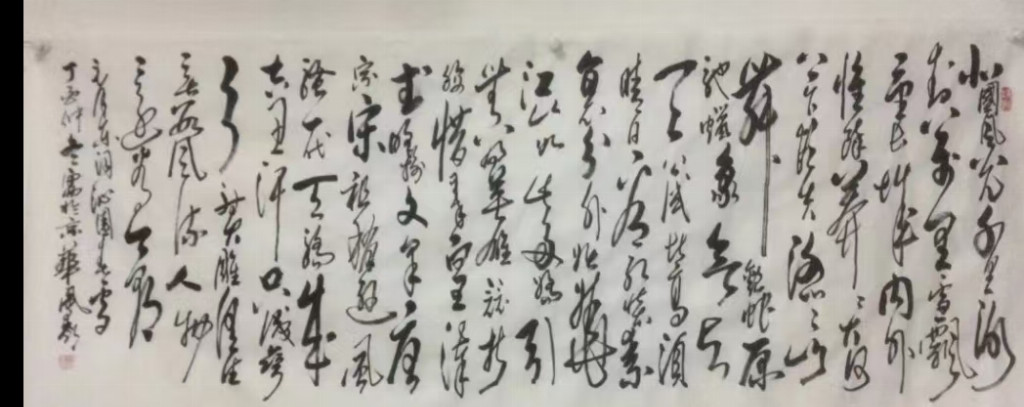 北國風光千里冰
封万里雪飘
望长城内外
惟余莽莽大河
上下顿失滔滔山
舞银蛇原
驰蜡象欲与
天公试比高须
晴日看红装素
裹分外妖娆
江山如此多娇引
无数英雄竞折
腰惜秦皇汉
武略输文采唐
宗宋祖稍逊風
骚一代天骄成
吉思汗只识弯
弓射大雕俱往
矣数風流人物
还看今朝
毛泽东词沁園春雪
丁酉仲冬 於京華